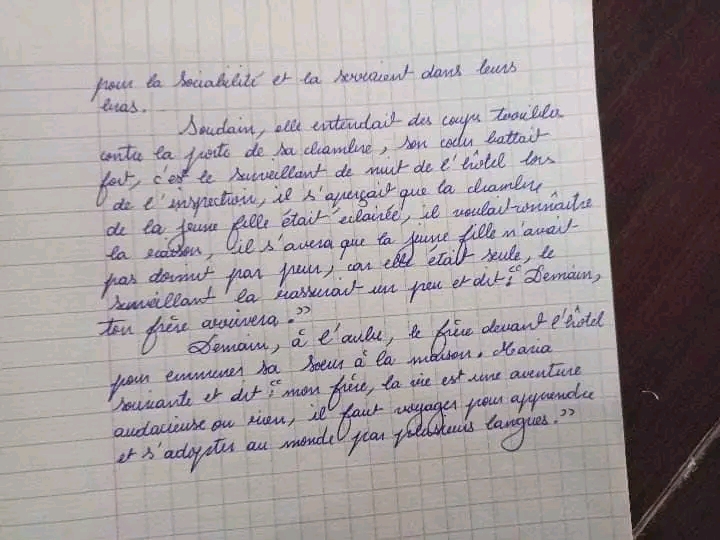 pour la sociabilité et la serraient dans leurs
bras.
Soudain, elle entendait des coups terribles
contre la porte de sa chambre, son cœur battait
fort, c'est le surveillant de nuit de l'hôtel lors
de l'inspection, il s'aperçait que la chambre
de la jeune fille était éclairée, il voulait connaître
la raison, il s'avera que la jeune fille n'avait
pas dormit par peur, car elle était seule, le
surveillant la rassurait un peu et dit : "Demain,
ton frère arrivera."
Demain, à l'aube, le frère devant l'hôtel
pour emmener sa sœur à la maison. Maria
souriante et dit : "mon frère, la vie est une aventure
audacieuse ou rien, il faut voyager pour apprendre
et s'adopter au monde par plusieurs langues."